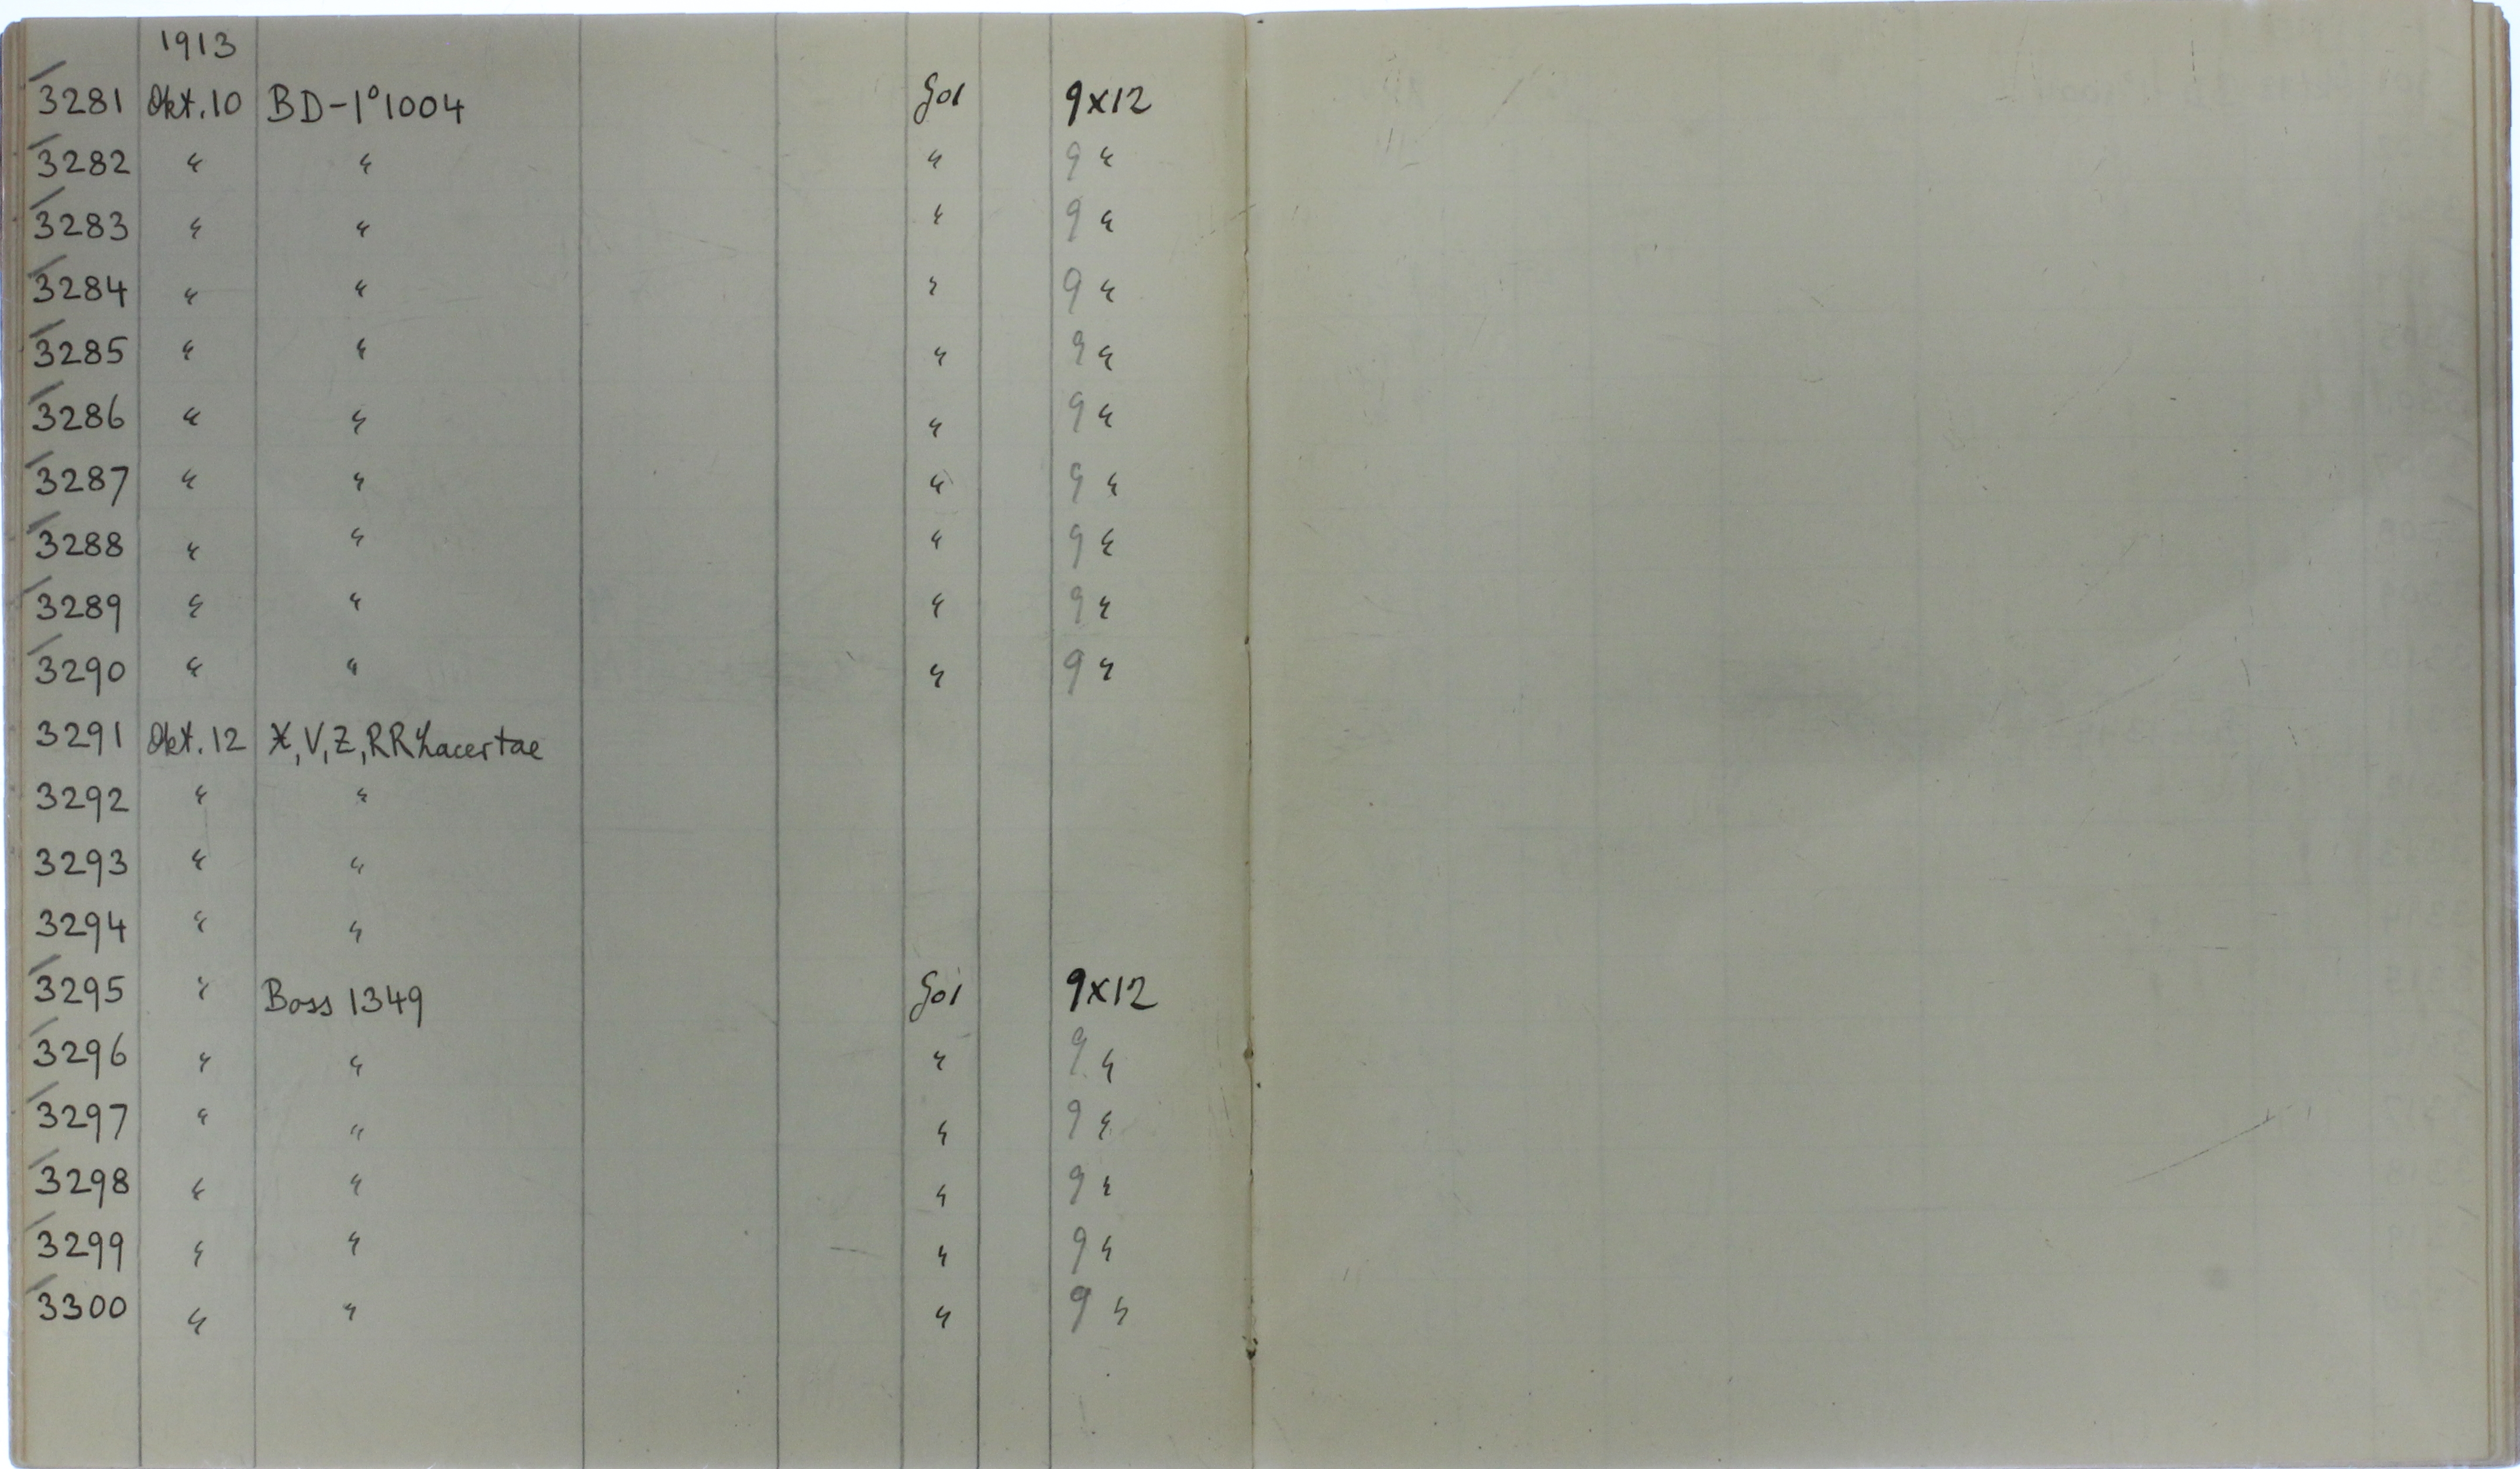 1913
3281 Okt. 10 BD-1°1004 9x12
3282 " " " 9 "
3283 " " " 9 "
3284 " " " 9 "
3285 " " " 9 "
3286 " " " 9 "
3287 " " " 9 "
3288 " " " 9 "
3289 " " " 9 "
3290 " " " 9 "
3291 Okt. 12 X, V, Z, RR Lacertae
3292 " "
3293 " "
3294 " "
3295 " Boss 1349 9x12
3296 " " " 9 "
3297 " " " 9 "
3298 " " " 9 "
3299 " " " 9 "
3300 " " " 9 "